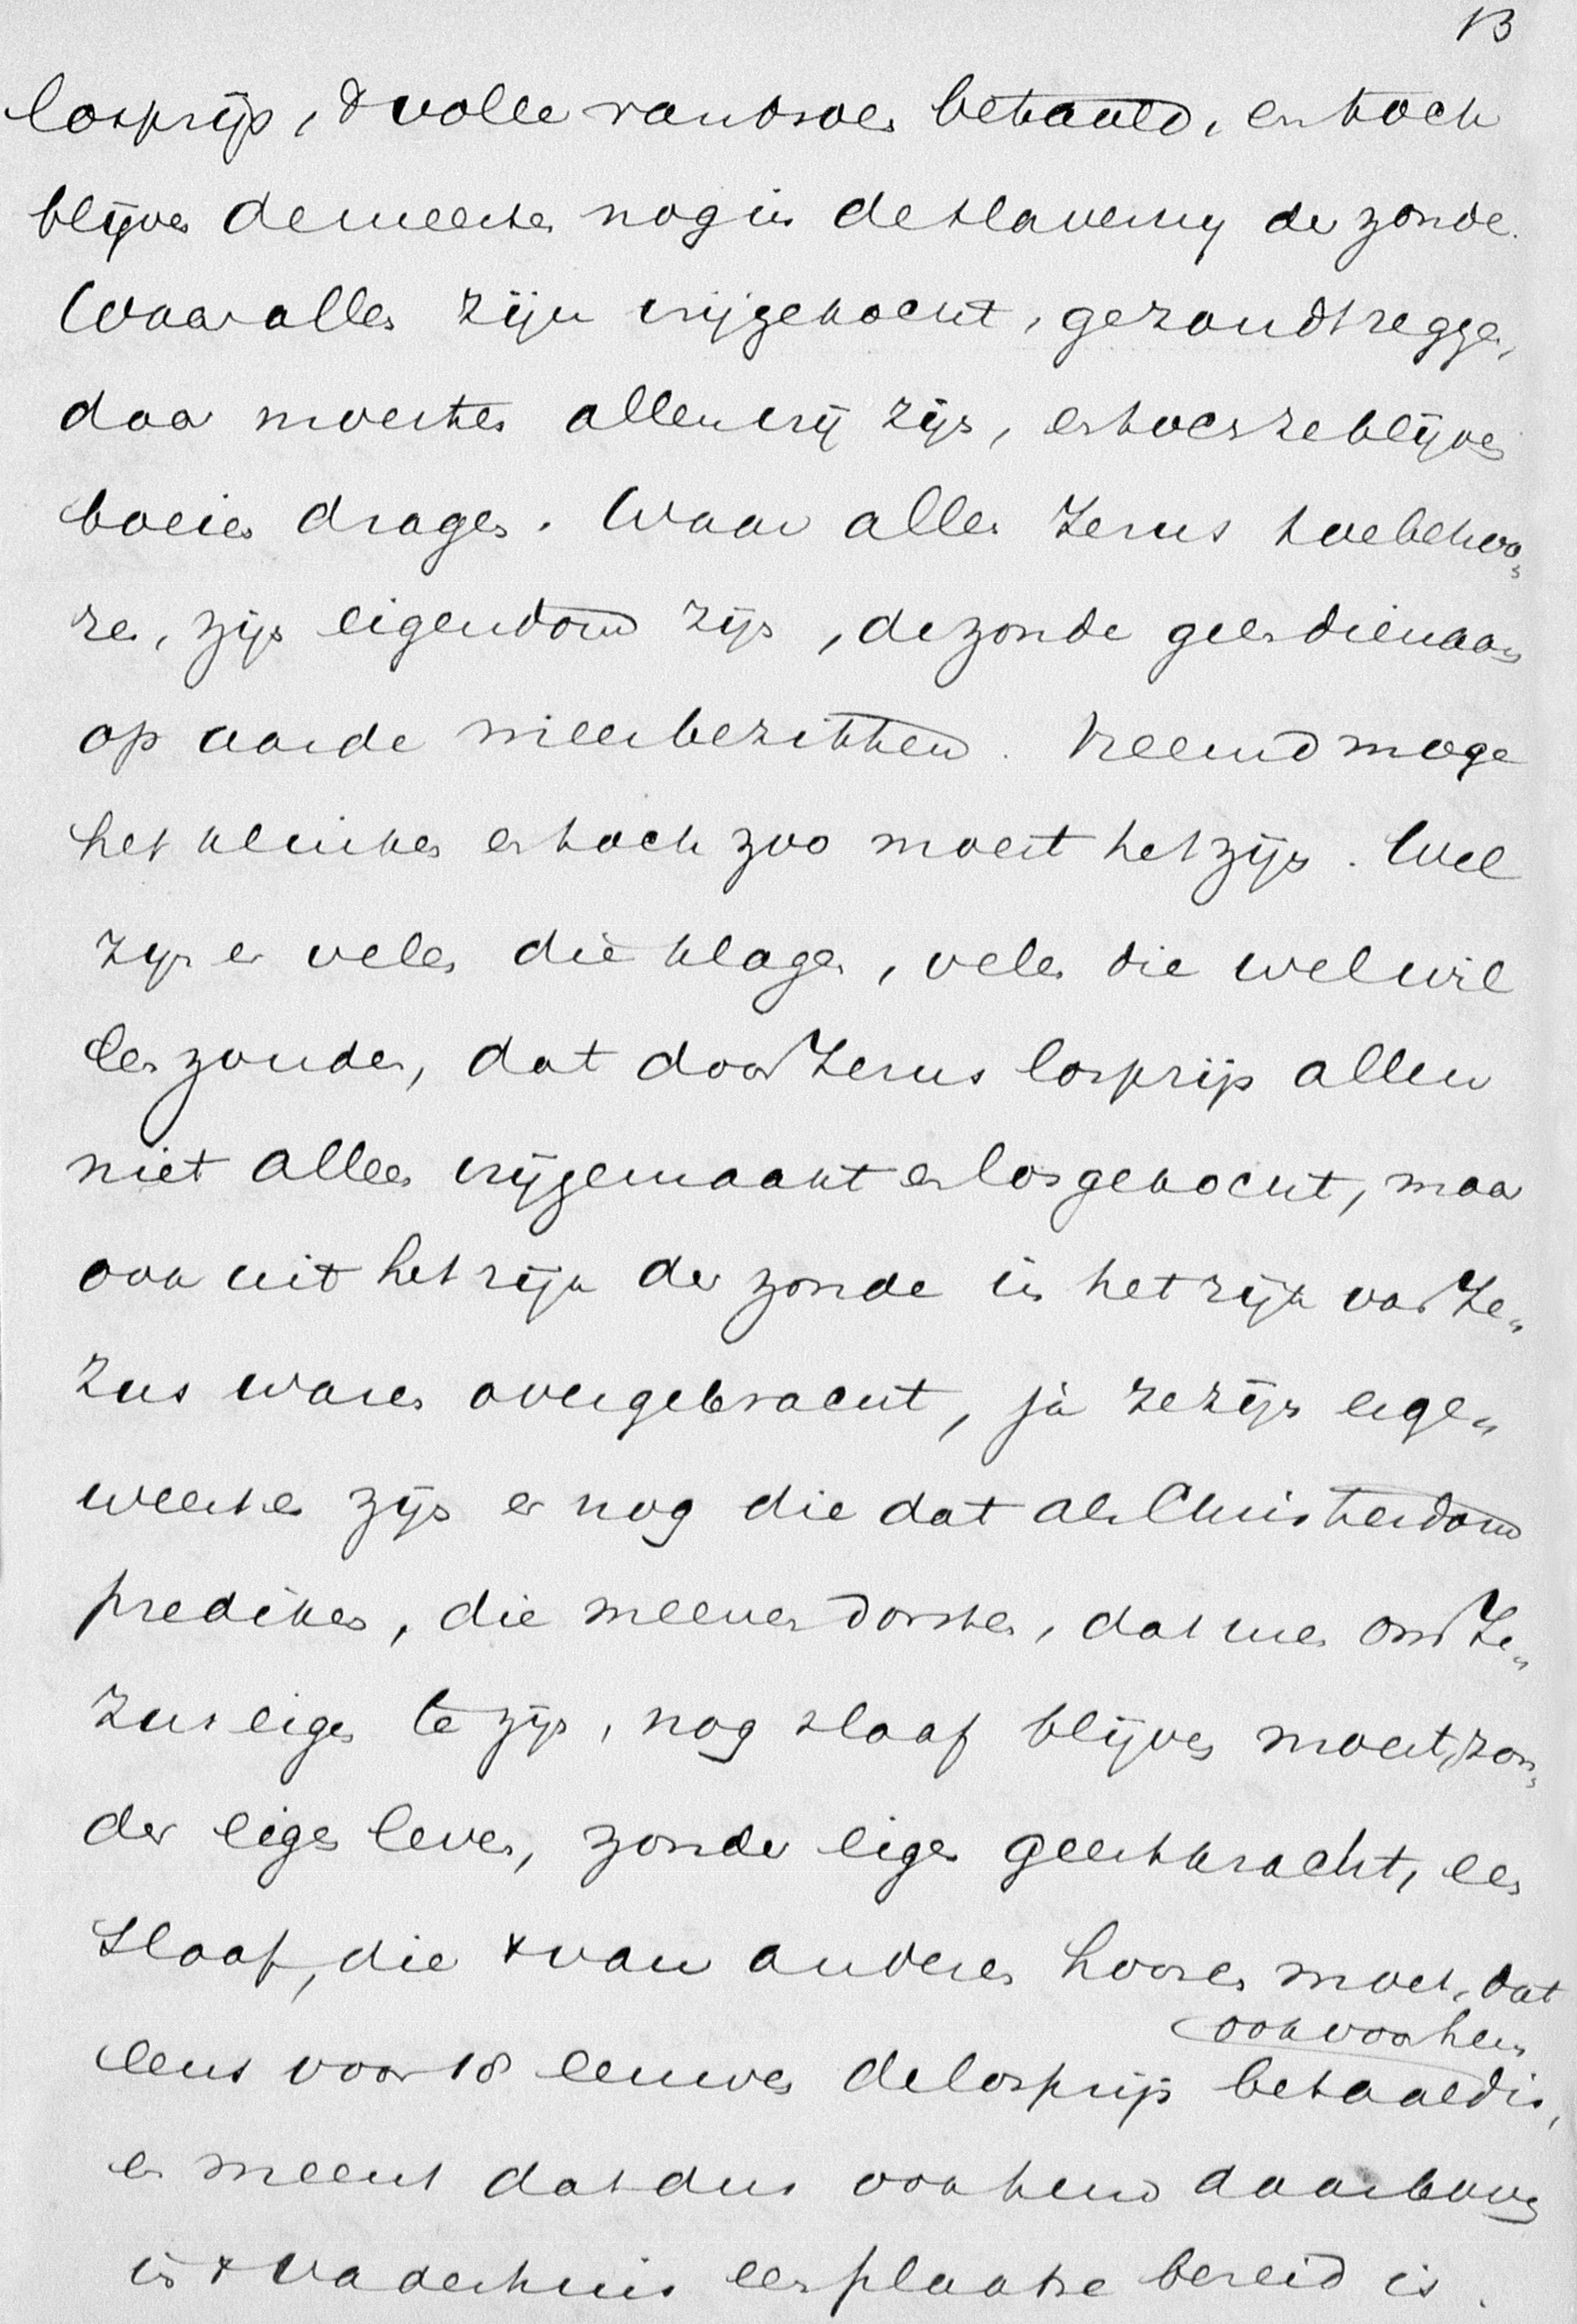 13
losprijs, & volle randsoen betaald, en toch
blijven de meesten nog in de slaverny der zonde.
Waar allen zijn vrijgekocht, gezondt zeggen,
daar moesten allen vrij zijn, en toch ze blijven
boeien dragen. Waar allen Jezus toebehoo„
ren, zijn eigendom zijn, de zonde geen dienaars
op aarde meer bezitten. Vreemd moge
het klinken en toch zoo moest het zijn. Wel
zyn er velen die klagen, velen die wel wil
len zonden, dat door Jezus losprijs allen
niet alleen vrijgemaakt en losgekocht, maar
ook uit het rijk der zonde in het rijk van Je„
zus waren overgebracht, ja ze zijn er ge„
weest en zijn er nog die dat als Christendom
prediken, die meenen dorsten, dat men om Je„
zus eigen te zijn, nog slaaf blijven moest, zon„
der eigen leven, zonder eigen geestkracht, een
slaaf, die van anderen hooren moet, dat
ook voor hen
eens voor 18 eeuwen de losprijs betaald is,
en meent dat dus ook hem daarboven
in & Vaderhuis een plaatse bereid is.